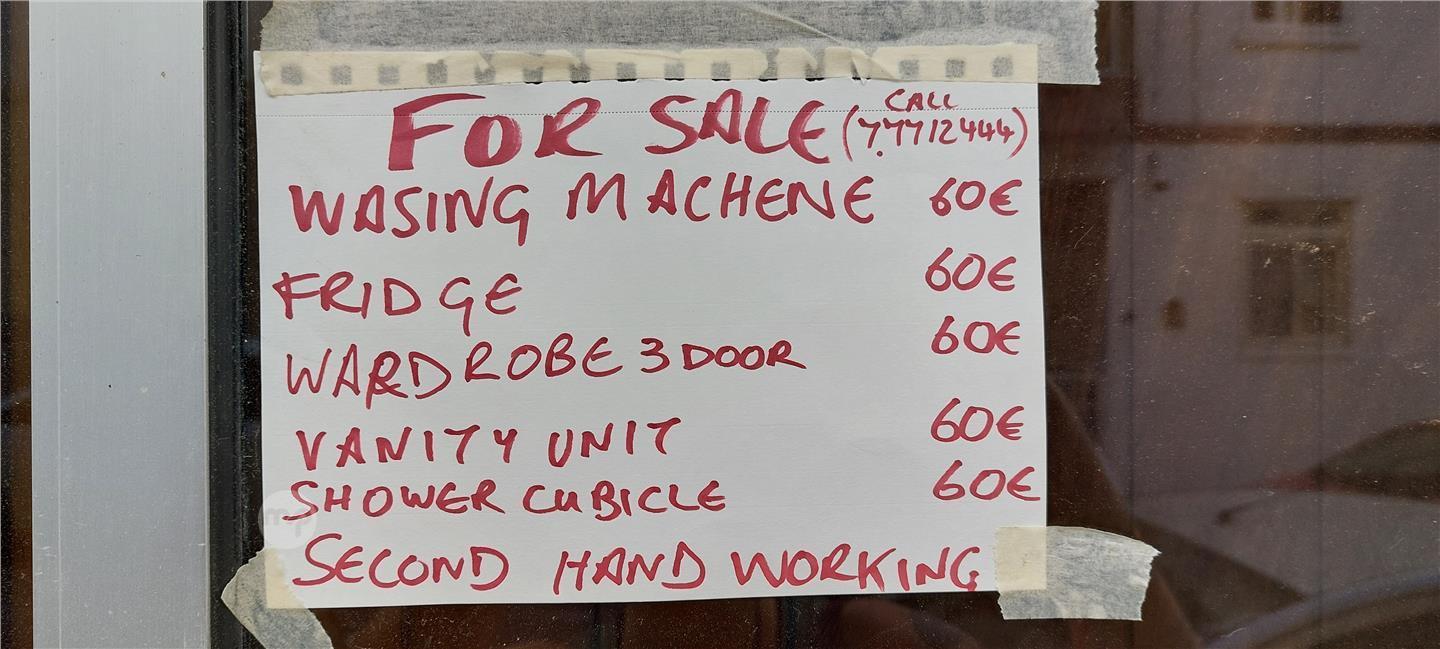 FOR SALE (CALL
7.7712444)
WASING MACHENE 60€
FRIDGE 60€
WARDROBE 3 DOOR 60€
VANITY UNIT 60€
SHOWER CUBICLE 60€
SECOND HAND WORKING
mp